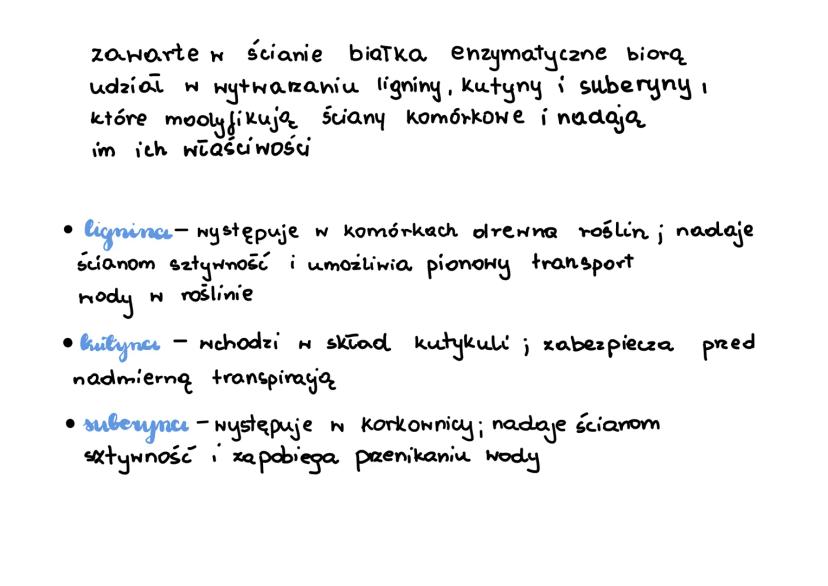 zawarte w ścianie białka enzymatyczne biorą
udział w wytwarzaniu ligniny, kutyny i suberyny,
które modyfikują ściany komórkowe i nadają
im ich właściwości
• lignina – występuje w komórkach drewna roślin; nadaje
ścianom sztywność i umożliwia pionowy transport
wody w roślinie
• kutyna – wchodzi w skład kutykuli; zabezpiecza przed
nadmierną transpiracją
• suberyna – występuje w korkownicy; nadaje ścianom
sztywność i zapobiega przenikaniu wody